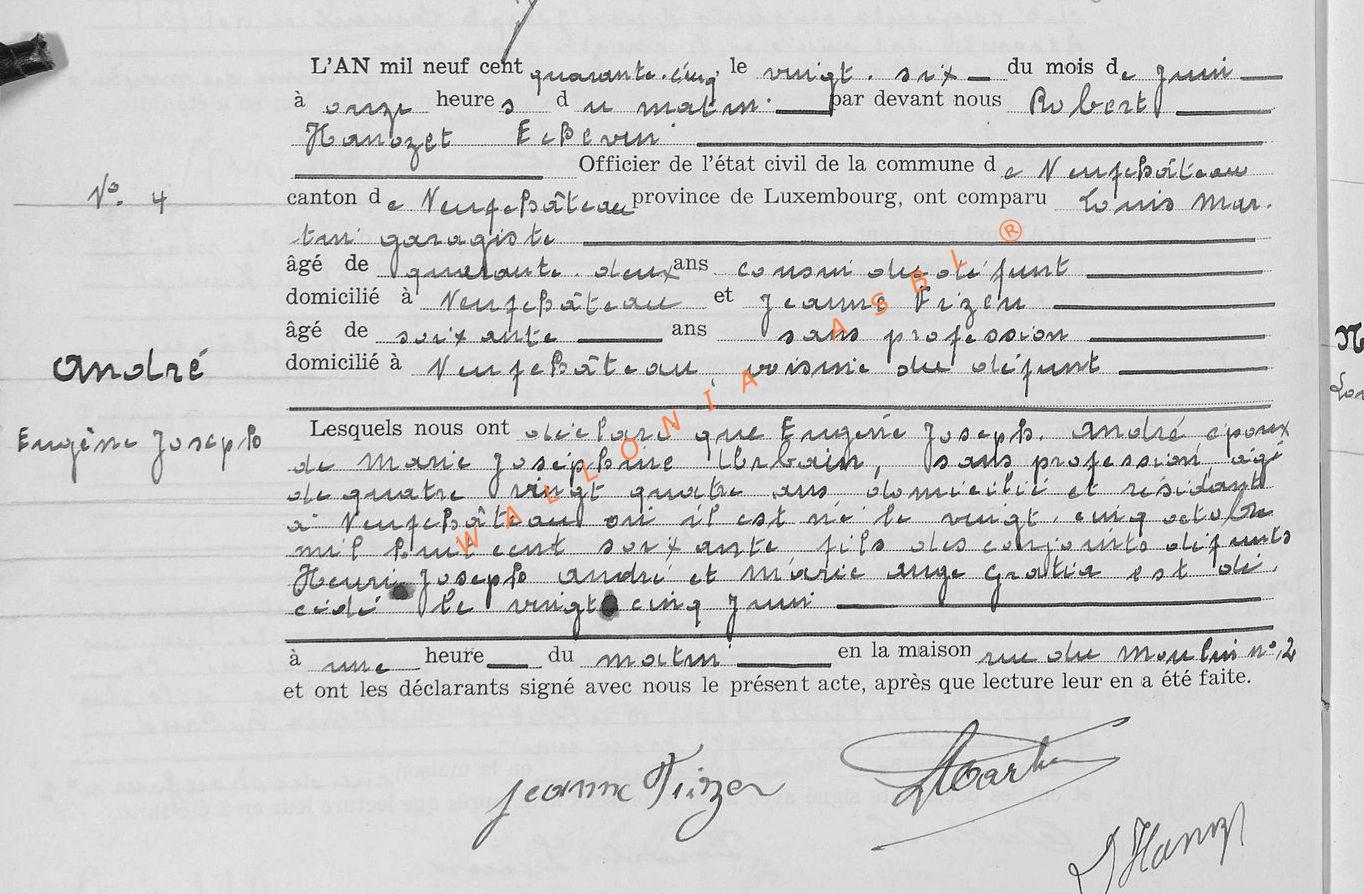 L'AN mil neuf cent quarante-cinq le vingt-six du mois de Juin
à onze heures du matin. par devant nous Robert
Hanozet Echevin
Officier de l'état civil de la commune de Neufchâteau
N° 4
canton de Neufchâteau province de Luxembourg, ont comparu Louis Mar-
tin garagiste
âgé de quarante-deux ans cousin du défunt
domicilié à Neufchâteau et Jeanne
âgé de soixante ans sans profession
André
domicilié à Neufchâteau, voisine du défunt
Eugène Joseph
Lesquels nous ont déclaré que Eugène Joseph André, époux
de Marie Joséphine Urbain, sans profession âgé
de quatre vingt quatre ans, domicilié et résidant
à Neufchâteau où il est né le vingt-cinq octobre
mil huit cent soixante fils des conjoints défunts
Henri Joseph André et Marie Ange Gratia est dé-
cédé le vingt cinq Juin
à une heure du matin en la maison rue du Moulin n° 2
et ont les déclarants signé avec nous le présent acte, après que lecture leur en a été faite.
Jeanne
WALLONIA ASBL ®